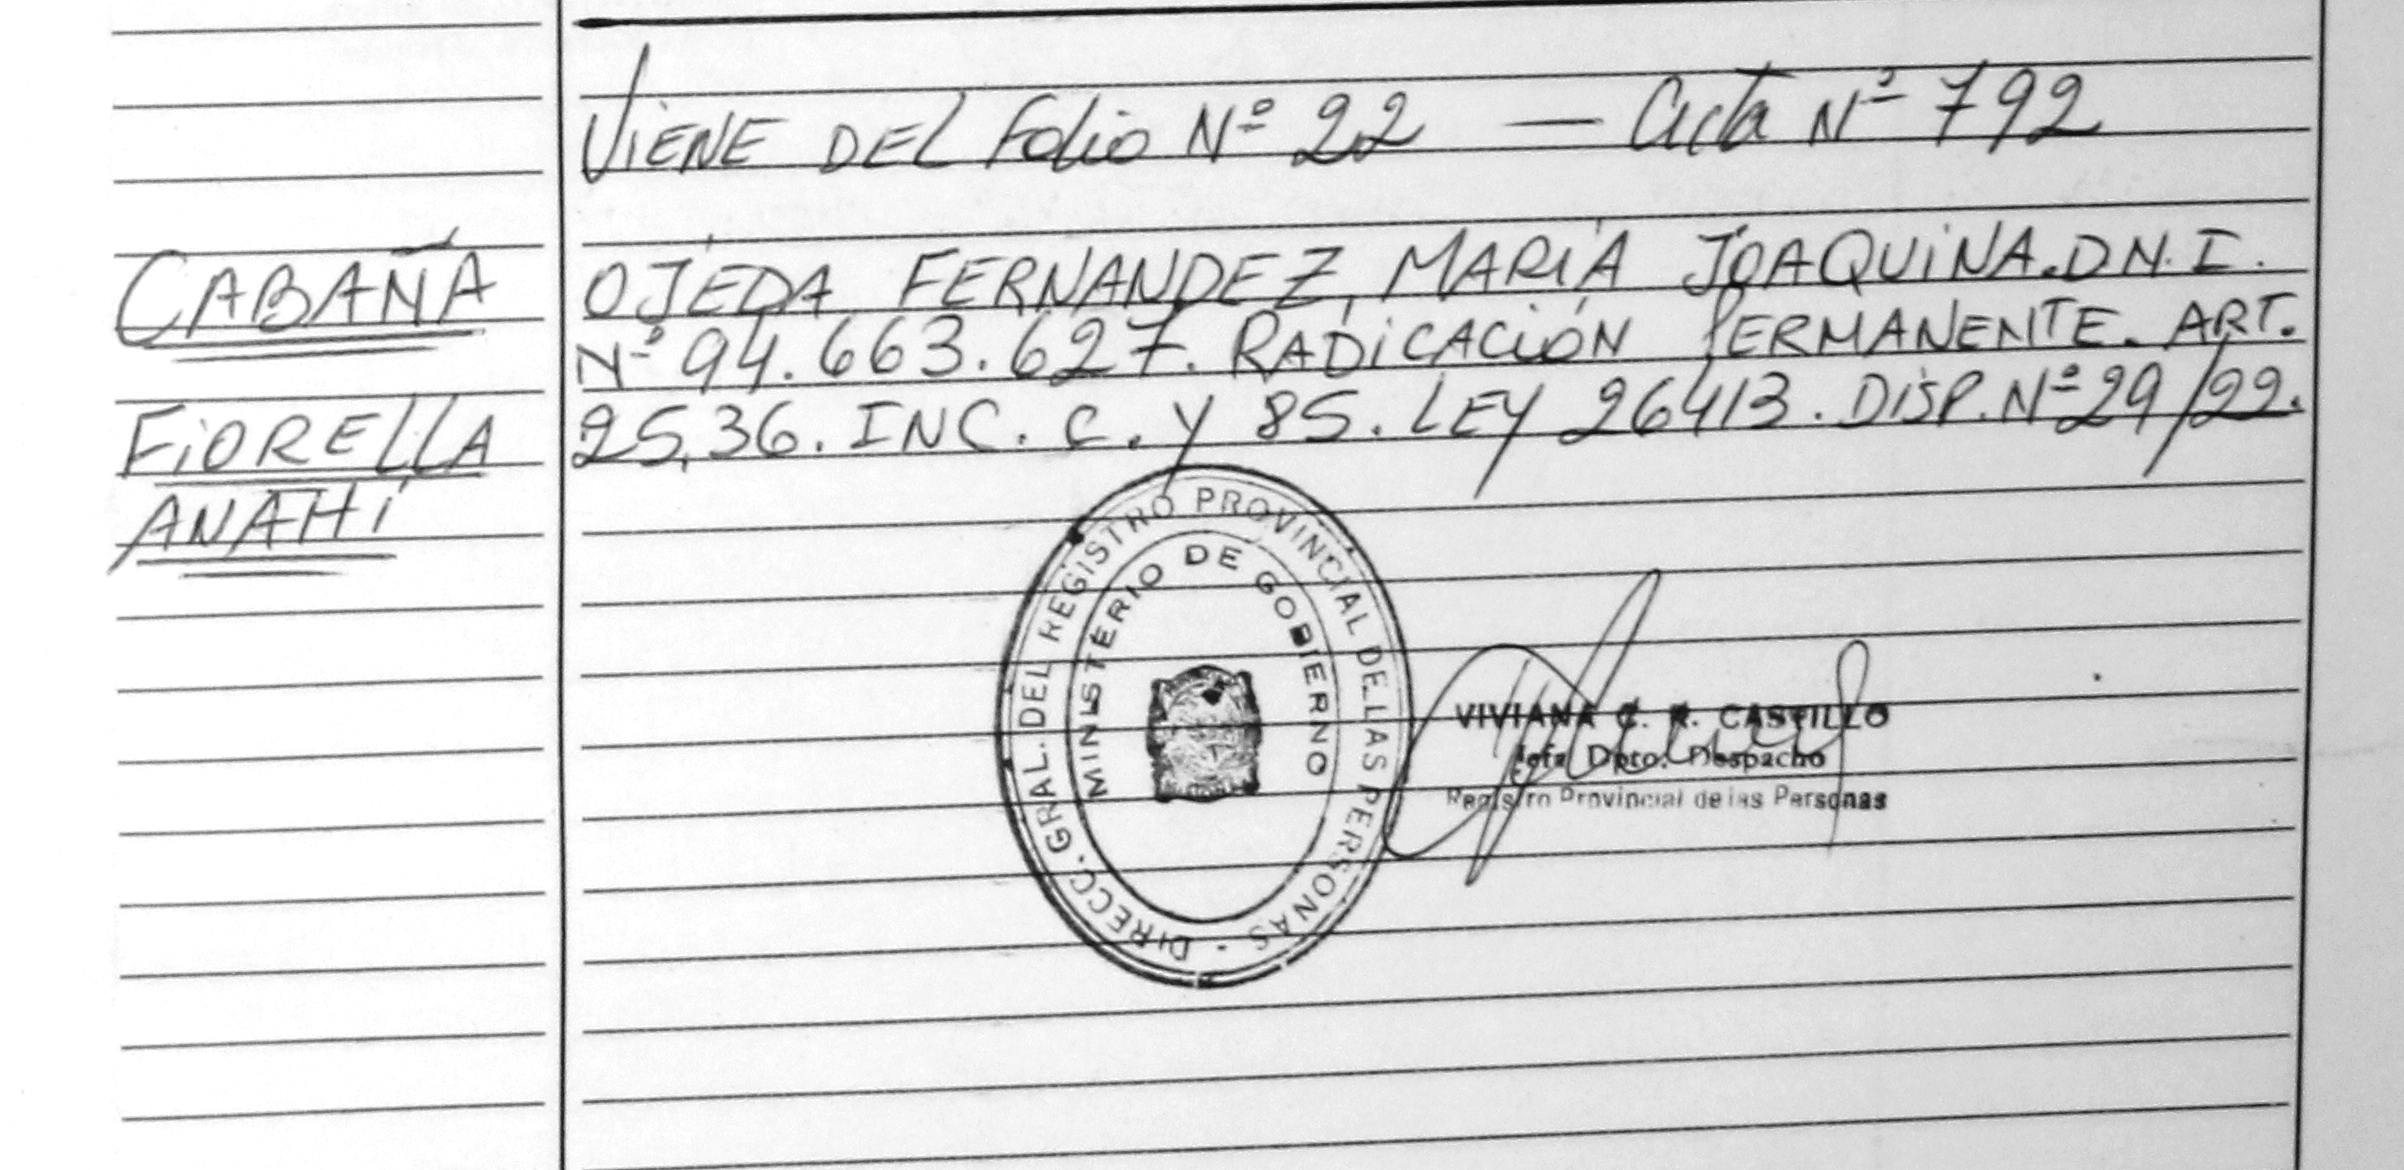 Viene del Folio Nº 22 — Acta Nº 792
CABAÑA
FiORELLA
ANAHí
OJEDA FERNANDEZ, MARíA JOAQUiNA. D N. I.
Nº 94.663.627. RADiCACióN PERMANENTE. ART.
25,36. INC. c. y 85. LEY 26413. DiSP. Nº 29/22.
DIRECC. GRAL. DEL REGISTRO PROVINCIAL DE LAS PERSONAS -
MINISTERIO DE GOBIERNO
VIVIANA C. R. CASTILLO
Jefa Dpto. Despacho
Registro Provincial de las Personas